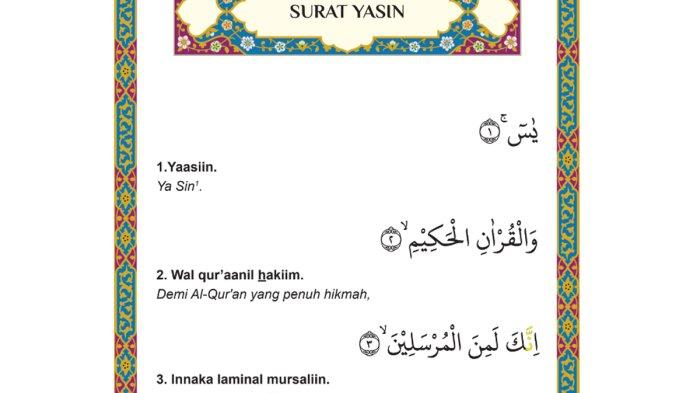 SURAT YASIN
يٰسۤ ۚ ۝١
1.Yaasiin.
Ya Sin¹.
وَالْقُرْاٰنِ الْحَكِيْمِۙ ۝٢
2. Wal qur’aanil hakiim.
Demi Al-Qur'an yang penuh hikmah,
اِنَّكَ لَمِنَ الْمُرْسَلِيْنَۙ ۝٣
3. Innaka laminal mursaliin.